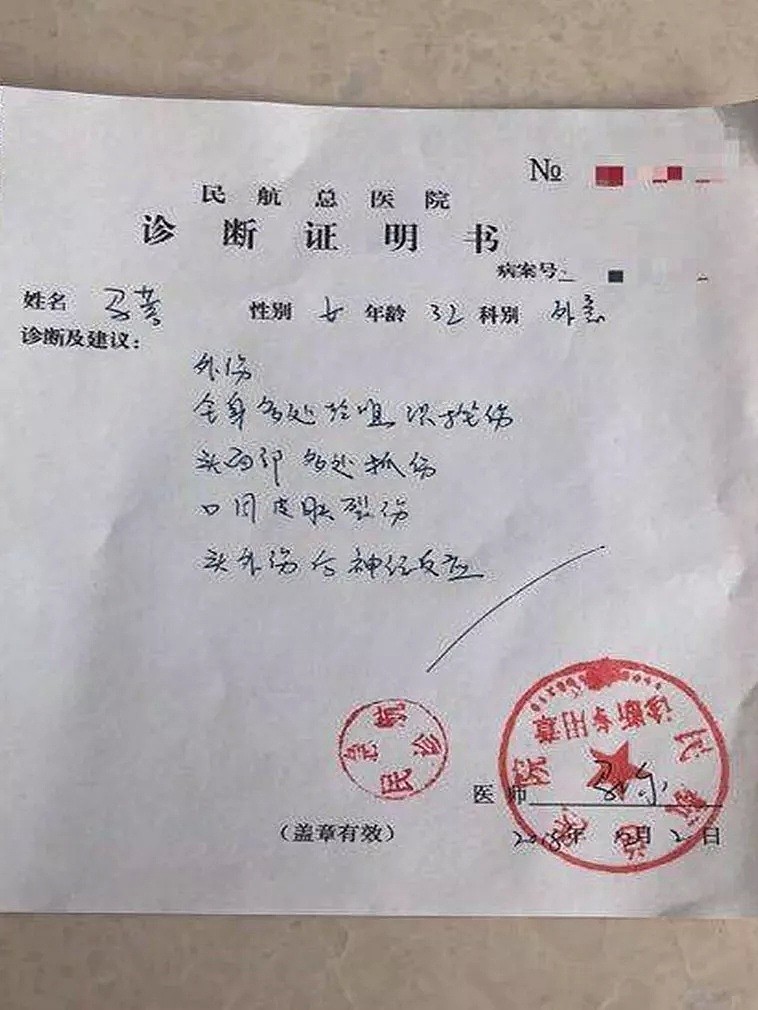 №
民航总医院
诊断证明书
病案号:
姓名 马 性别 女 年龄 32 科别 外急
诊断及建议:
外伤
全身多处软组织挫伤
头面部多处抓伤
口周皮肤裂伤
头外伤后神经反应
民航急诊
民航总医院
诊断专用章
医师
(盖章有效)
2018年 12月 2日